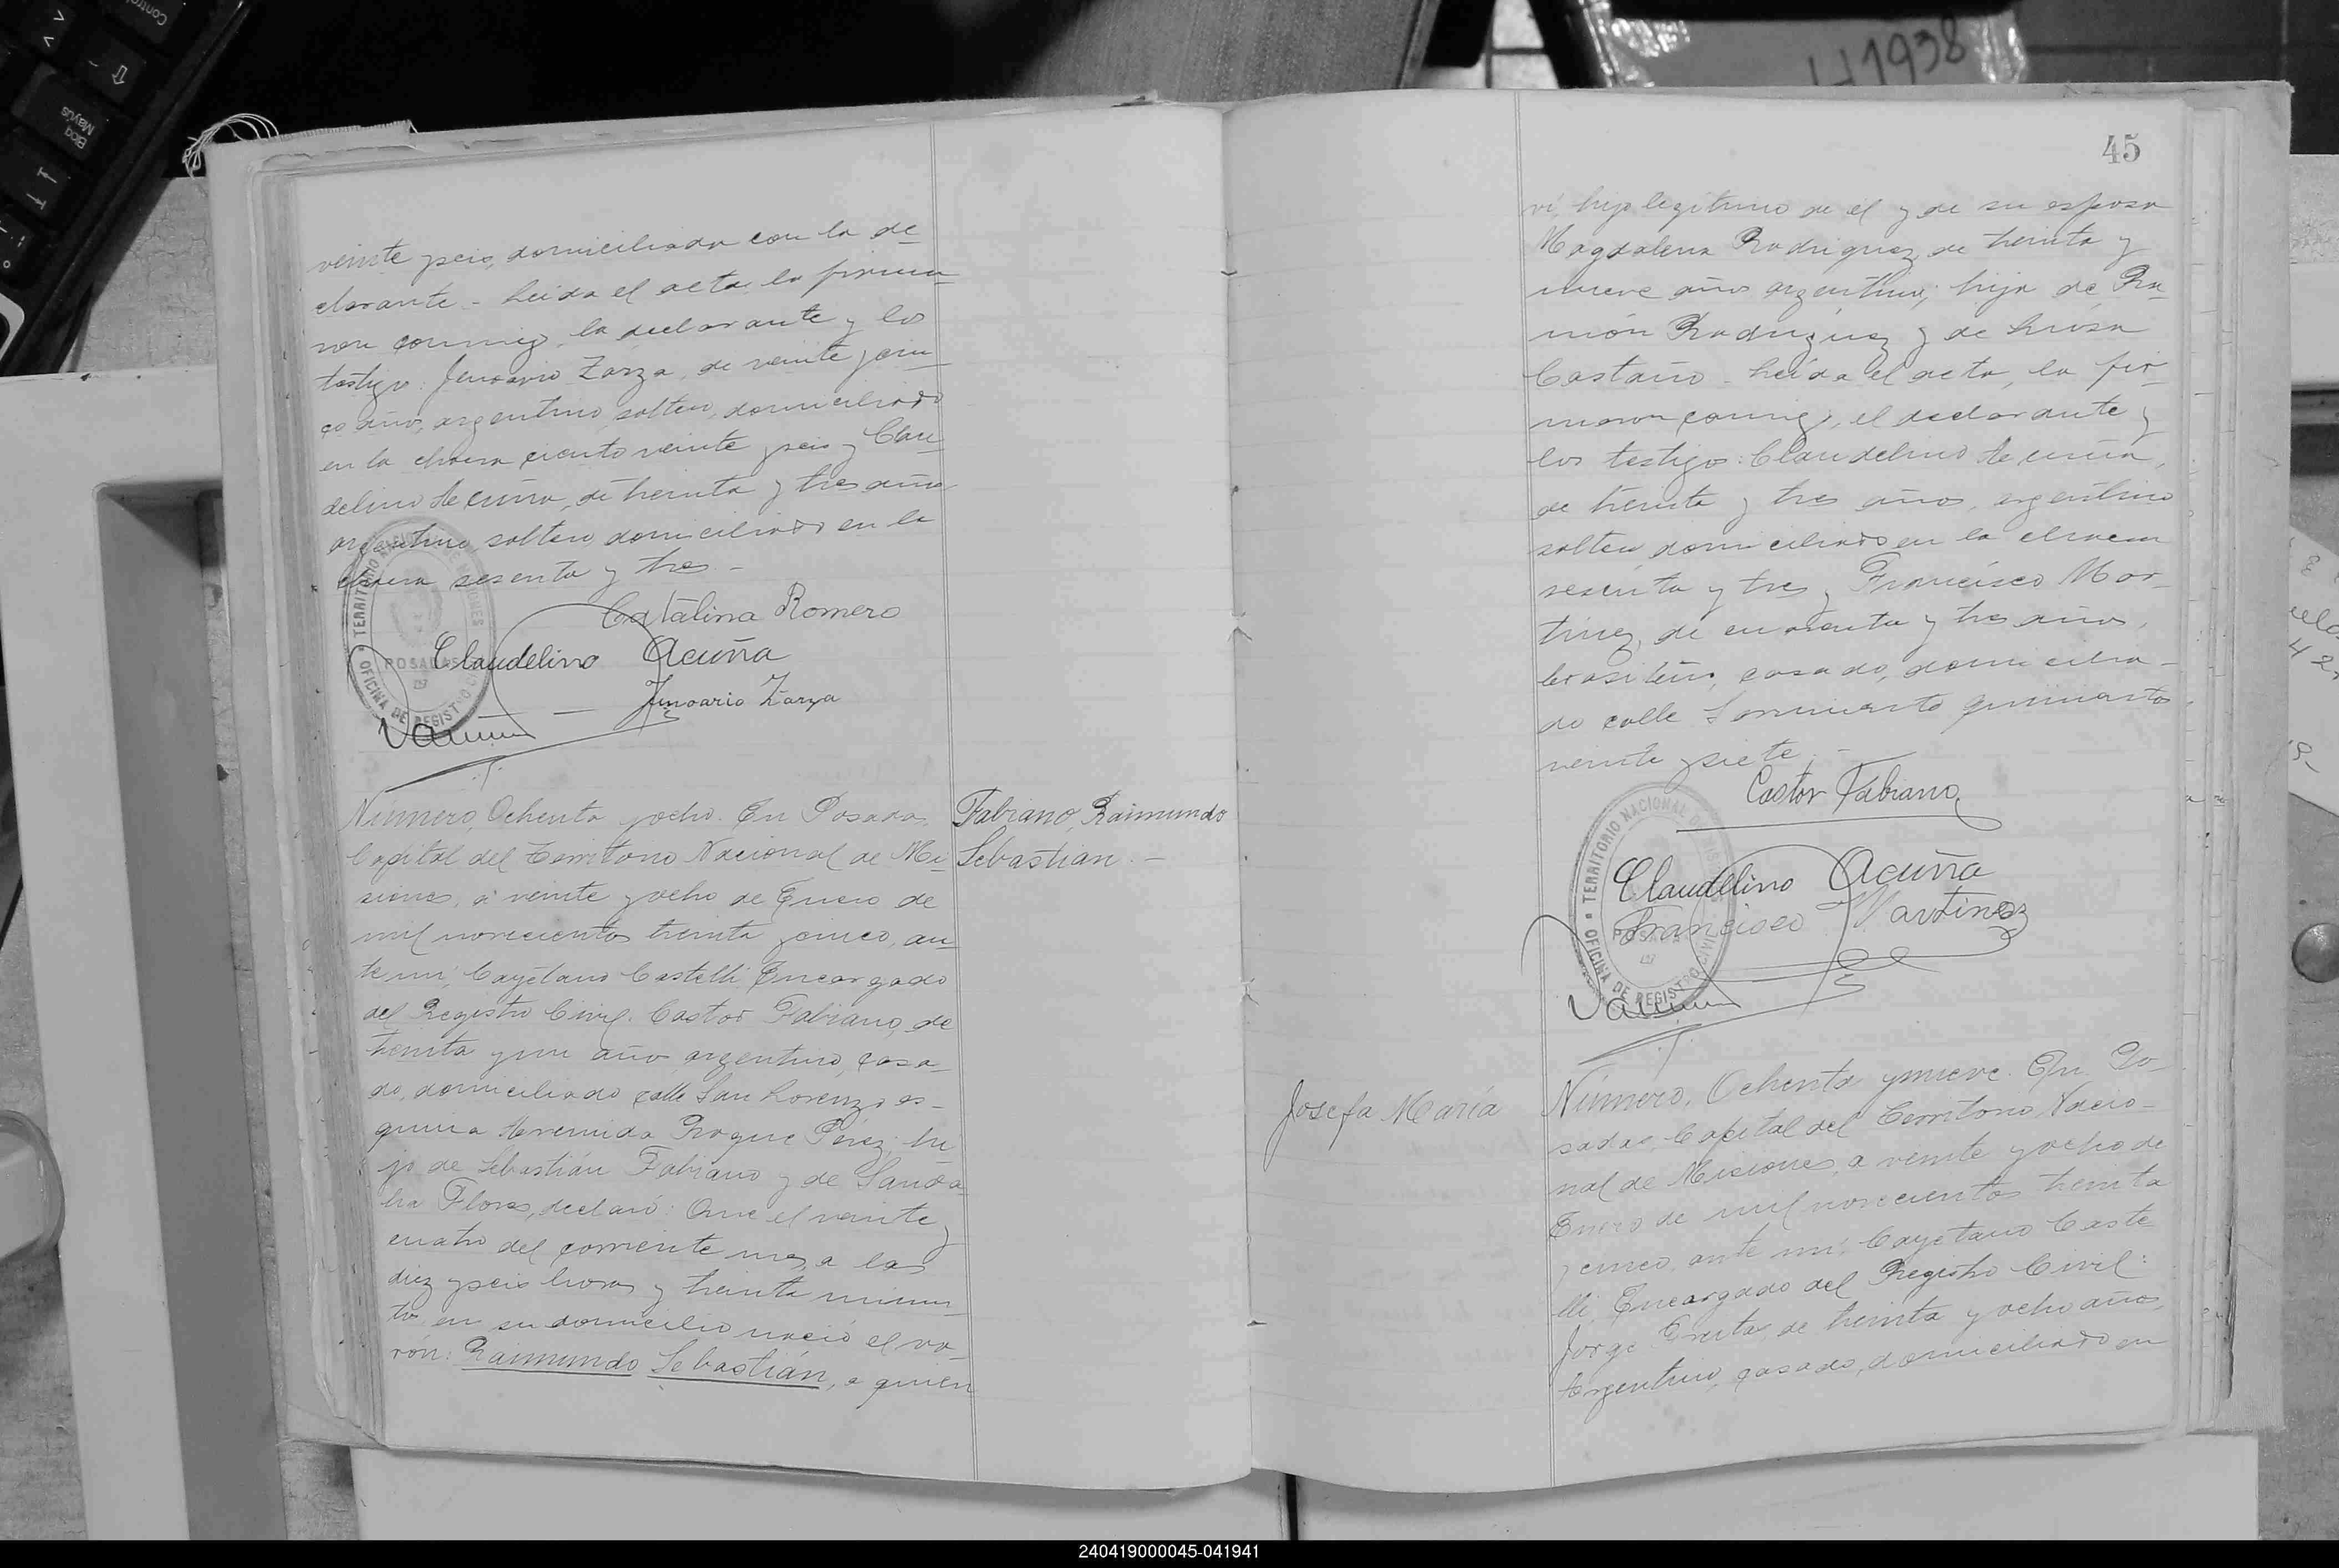 H1938
45
veinte y seis, domiciliada con la de
clarante - Leida el acta la firma
ron conmigo, la declarante y los
testigos: Jenuario Zarza, de veinte y cin
co años, argentino, soltero, domiciliado
en la chacra ciento veinte y seis y Clau
delino Acuña, de treinta y tres años
argentino, soltero, domiciliado en la
chacra sesenta y tres -
Catalina Romero
Claudelino Acuña
Jenoario Zarza
OFICINA DE REGISTRO CIVIL TERRITORIO NACIONAL DE MISIONES
POSADAS
Número, Ochenta y ocho. En Posadas,
Capital del Territorio Nacional de Mi
siones, a veinte y ocho de Enero de
mil novecientos treinta y cinco, an
te mi, Cayetano Castelli Encargado
del Registro Civil. Castor Fabiano, de
treinta y un año argentino, casa
do, domiciliado calle San Lorenzo es-
quina Avenida Roque Pérez; hi
jo de Sebastián Fabiano y de
Flores, declaró: Que el veinte y
cuatro del corriente mes, a las
diez y seis horas y treinta minu
tos, en su domicilio nació el va
rón: Raimundo Sebastián, a quien
Fabiano, Raimundo
Sebastian. -
ví, hijo legítimo de él y de su esposa
Magdalena Rodriguez, de treinta y
nueve años argentina; hija de Ra
món Rodriguez y de Luisa
Castaño - Leída el acta, la fir
maron conmigo, el declarante y
los testigos: Claudelino Acuña,
de treinta y tres años, argentino
soltero, domiciliado en la chacra
sesenta y tres y Francisco Mar-
tinez, de cuarenta y tres años,
brasilero, casado, domicilia-
do calle Sarmiento quinientos
veinte y siete. -
Castor Fabiano
Claudelino Acuña
Francisco Martinez
OFICINA DE REGISTRO CIVIL TERRITORIO NACIONAL DE MISIONES
POSADAS
Josefa María
Número, Ochenta y nueve. En Po-
sadas, Capital del Territorio Nacio-
nal de Misiones, a veinte y ocho de
Enero de mil novecientos treinta
y cinco, ante mí, Cayetano Caste
lli, Encargado del Registro Civil:
Jorge de treinta y ocho años,
Argentino, casado, domiciliado en
240419000045-041941